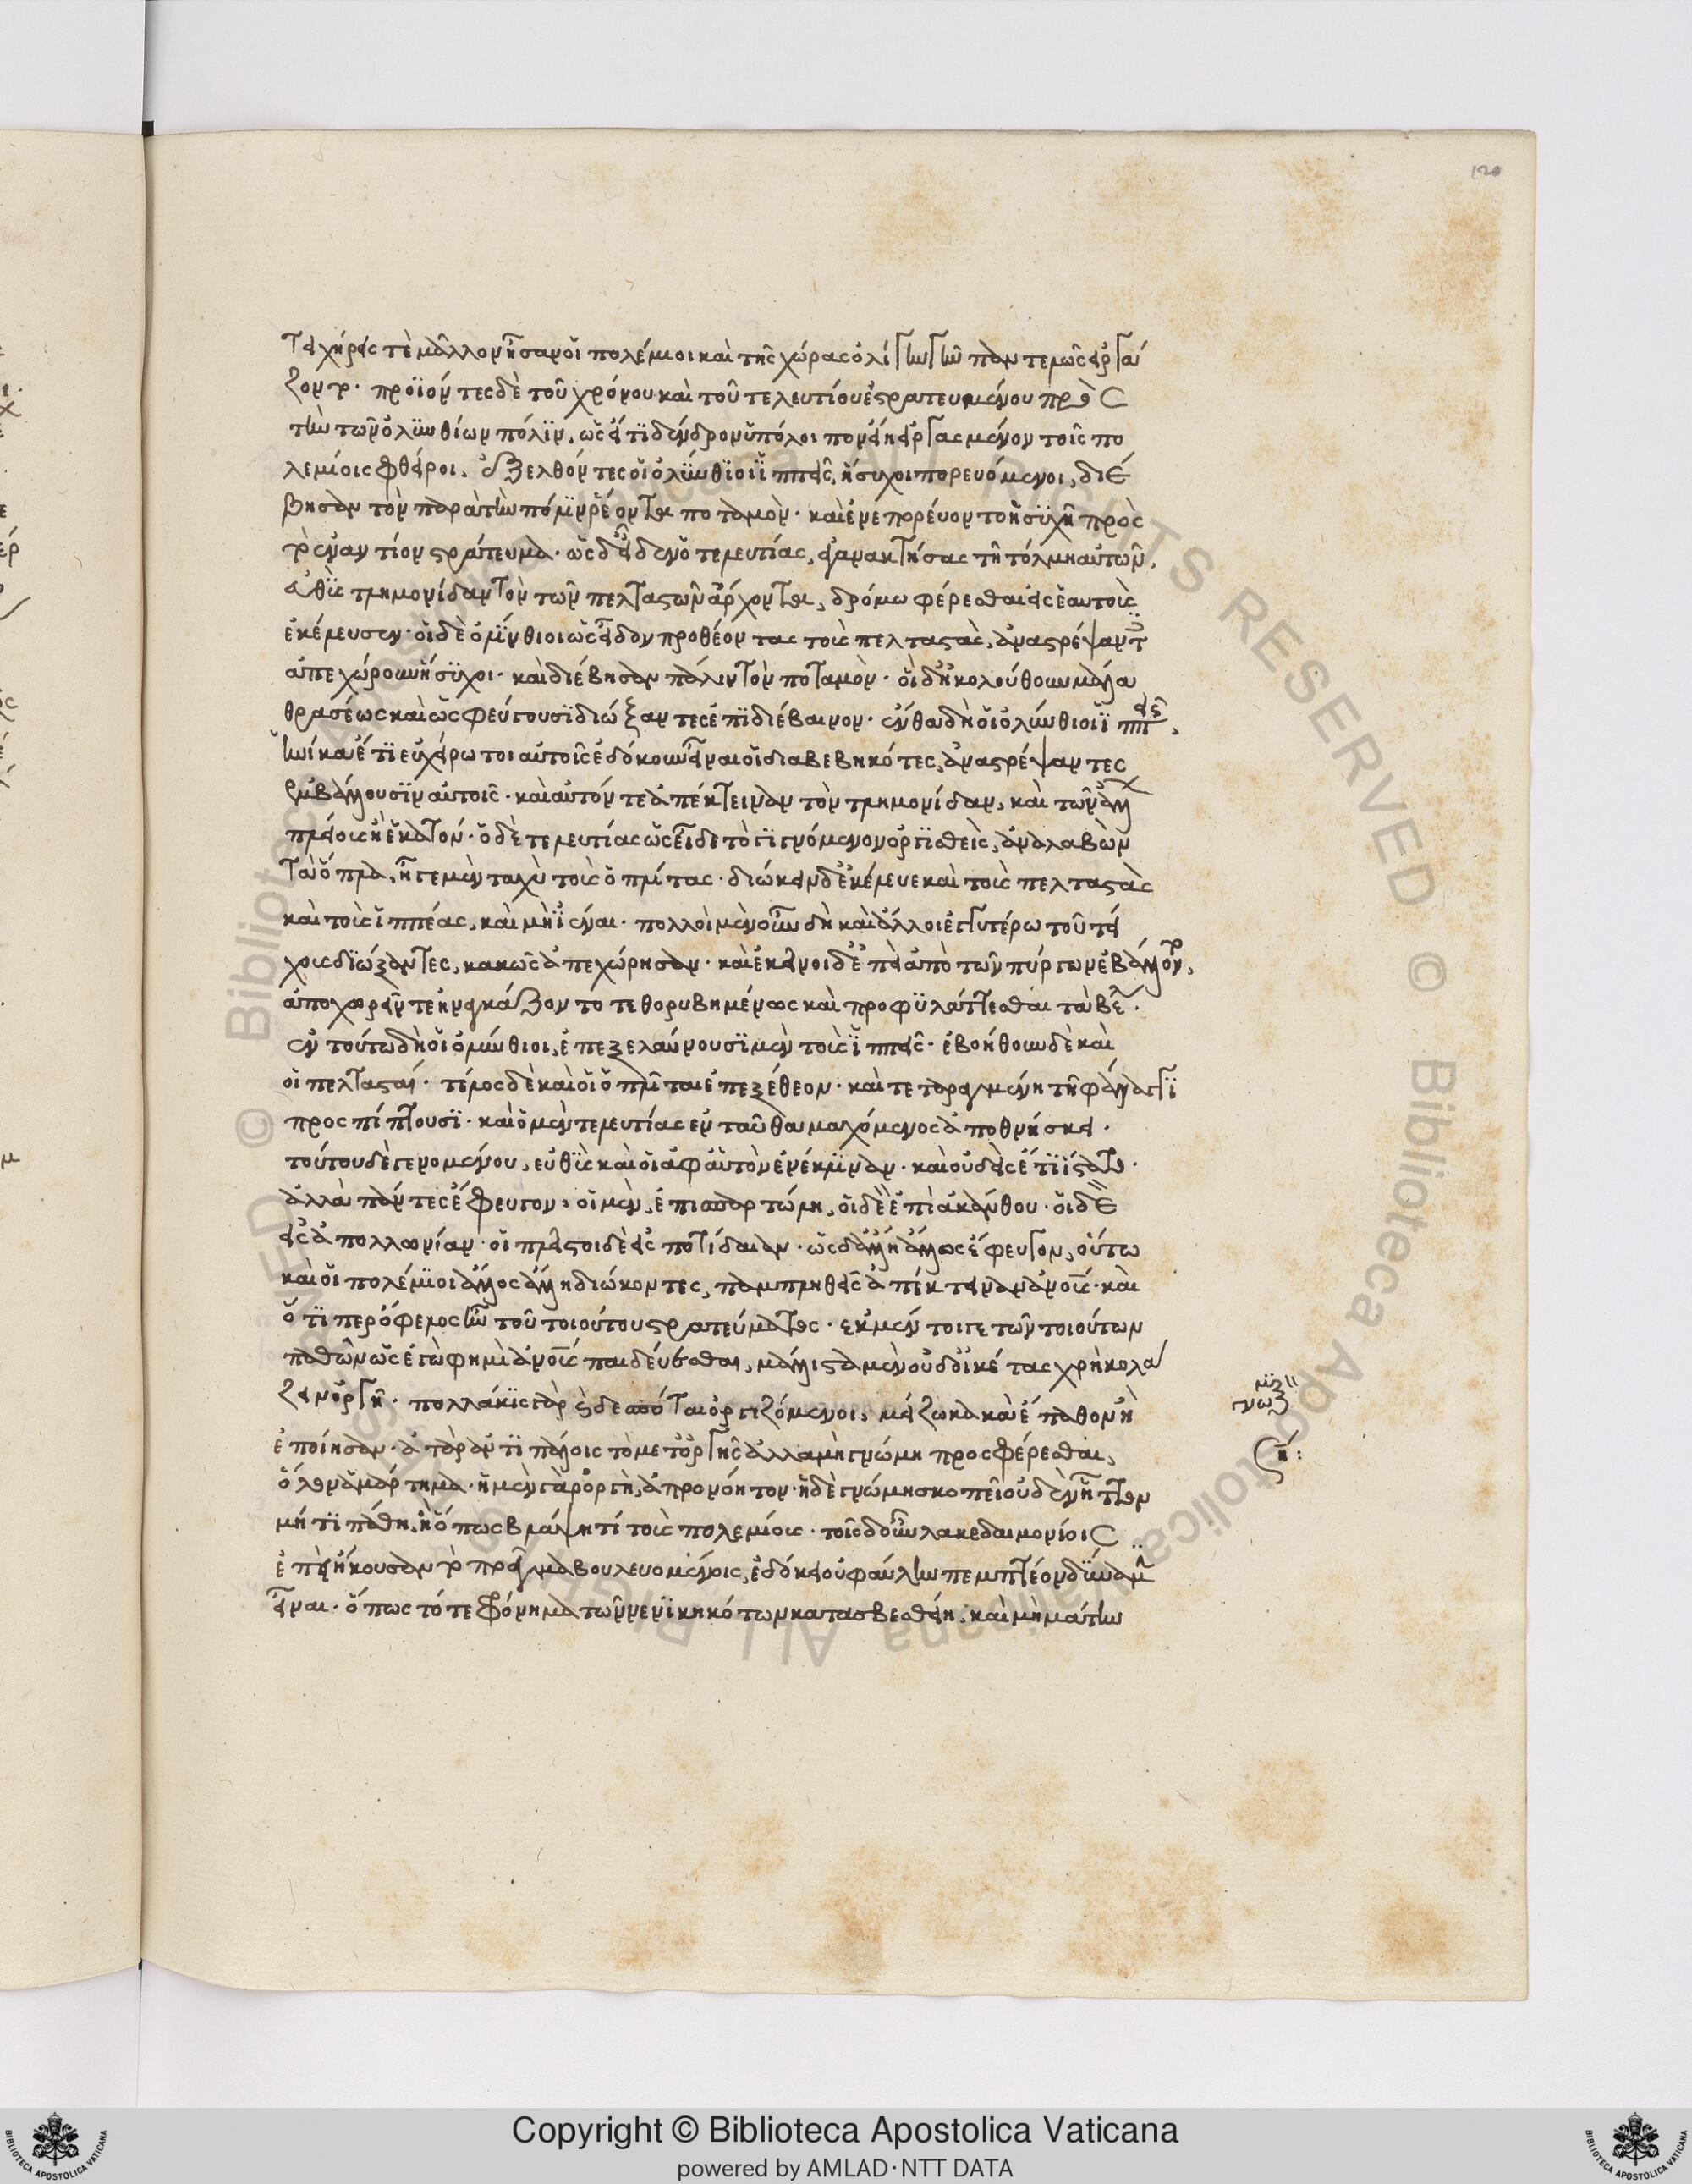 τειχήρεις τὲ μᾶλλον ἦσαν οἱ πολέμιοι καὶ τῆς χώρας ὀλίγην γῆν παντελῶς εἰργά
ζοντο. προϊόντες δὲ τοῦ χρόνου καὶ τοῦ τελευτίου ἐστρατευμένου πρὸς
τὴν τῶν ὀλυνθίων πόλιν, ὡς εἴ τι δένδρον ὑπόλοιπον ἢ εἰργασμένον τοῖς πο
λεμίοις φθείροι, ἐξελθόντες οἱ ὀλύνθιοι ἱππεῖς, ἥσυχοι πορευόμενοι, διέ
βησαν τὸν παρὰ τὴν πόλιν ῥέοντα ποταμόν. καὶ ἐνεπορεύοντο ἡσυχῆ πρὸς
τὸ ἐναντίον στράτευμα. ὡς δ' εἶδεν ὁ τελευτίας, ἀγανακτήσας τῇ τόλμῃ αὐτῶν,
εὐθὺς τλημονίδαν τὸν τῶν πελταστῶν ἄρχοντα, δρόμῳ φέρεσθαι εἰς ἑαυτοὺς
ἐκέλευσεν. οἱ δὲ ὀλύνθιοι ὡς εἶδον προθέοντας τοὺς πελταστὰς, ἀναστρέψαντες
ἀπεχώρουν ἥσυχοι. καὶ διέβησαν πάλιν τὸν ποταμόν. οἱ δ' ἠκολούθουν μάλα
θρασέως καὶ ὡς φεύγουσι διώξαντες ἐπιδιέβαινον. ἔνθα δὴ οἱ ὀλύνθιοι ἱππεῖς,
ἡνίκα ἔτι εὐχείρωτοι αὐτοῖς ἐδόκουν εἶναι οἱ διαβεβηκότες, ἀναστρέψαντες
ἐμβάλλουσιν αὐτοῖς. καὶ αὐτόν τε ἀπέκτειναν τὸν τλημονίδαν, καὶ τῶν ἄλλων
πλείους ἢ ἑκατόν. ὁ δὲ τελευτίας ὡς εἶδε τὸ γιγνόμενον ὀργισθεὶς, ἀναλαβὼν
τὰ ὅπλα, ἦγε μὲν ταχὺ τοὺς ὁπλίτας. διώκειν δ' ἐκέλευε καὶ τοὺς πελταστὰς
καὶ τοὺς ἱππέας, καὶ μὴ ἰέναι. πολλοὶ μὲν οὖν δὴ καὶ ἄλλοι ἐγγυτέρω τοῦ τεί
χους διώξαντες, κακῶς ἀπεχώρησαν. καὶ ἐκεῖνοι δ' ἐπεὶ ἀπὸ τῶν πύργων ἐβάλλοντο,
ἀποχωρεῖν τε ἠναγκάζοντο τεθορυβημένως καὶ προφυλάττεσθαι τὰ βέλη.
ἐν τούτῳ δὴ οἱ ὀλύνθιοι, ἐπεξελαύνουσι μὲν τοὺς ἱππεῖς. ἐβοήθουν δὲ καὶ
οἱ πελτασταί. τέλος δὲ καὶ οἱ ὁπλῖται ἐπεξέθεον. καὶ τεταραγμένῃ τῇ φάλαγγι
προσπίπτουσι. καὶ ὁ μὲν τελευτίας ἐνταῦθα μαχόμενος ἀποθνήσκει.
τούτου δὲ γενομένου, εὐθὺς καὶ οἱ ἀμφ' αὐτὸν ἐνέκλιναν. καὶ οὐδεὶς ἔτι ἵστατο.
ἀλλὰ πάντες ἔφευγον, οἱ μὲν, ἐπὶ σπαρτώλη, οἱ δὲ ἐπὶ ἀκάνθου. οἱ δὲ
εἰς ἀπολλωνίαν. οἱ πλεῖστοι δὲ εἰς ποτίδαιαν. ὡς δ' ἄλλη ἄλλως ἔφευγον, οὕτω
καὶ οἱ πολέμιοι ἄλλος ἄλλη διώκοντες, παμπληθεῖς ἀπέκτειναν ἀνους. καὶ
ὅτι περ ὄφελος ἦν τοῦ τοιούτου στρατεύματος. ἐκ μέν τοι γε τῶν τοιούτων
παθῶν ὡς ἐγὼ φημὶ ἀνους παιδεύεσθαι, μάλιστα μὲν οὐδ' οἰκέτας χρὴ κολά
ζειν ὀργῆ. πολλάκις γὰρ καὶ δεσπόται ὀργιζόμενοι, μείζω κακὰ ἔπαθον ἢ
ἐποίησαν. ἀτὰρ ἀντιπάλοις τὸ μετ' ὀργῆς ἀλλὰ μὴ γνώμη προσφέρεσθαι,
ὅλον ἁμάρτημα. ἡ μὲν γὰρ ὀργὴ, ἀπρονόητον. ἡ δὲ γνώμη σκοπεῖ οὐδὲν ἧττον
μή τι πάθη, ἢ ὅπως βλάψη τί τοὺς πολεμίους. τοῖς δ' οὖν λακεδαιμονίοις
ἐπεὶ ἤκουσαν τὸ πρᾶγμα βουλευομένοις, ἐδόκει οὐ φαύλην πεμπτέον δύναμιν
εἶναι. ὅπως τό τε φρόνημα τῶν νενικηκότων κατασβεσθείη, καὶ μὴ μάτην